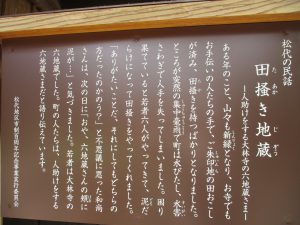 松代の民話
田掻き地蔵
たあか じぞう
―人助けをする大林寺の六地蔵さま―
ある年のこと、山々も新緑となり、お寺でも
お手伝いの人たちの手で、ご朱印地の田おこし
が済み、田掻きを待つばかりとなりました。
ところが突然の集中豪雨で町は水びたし、水害
さわぎで人手を失ってしまいました。困り
果てていると若者六人がやってきて、泥だ
らけになって田掻きをやってくれました。
「ありがたいことだ、それにしてもどちらの
方だったのかのう？」と不思議に思った和尚
さんは、次の日に「おや、六地蔵さんの頬に
泥が…」と気づきました。若者は大林寺の
六地蔵でした。町の人たちは、人助けをする
六地蔵さまだと語り伝えています。
松代地区市制百周年記念事業実行委員会